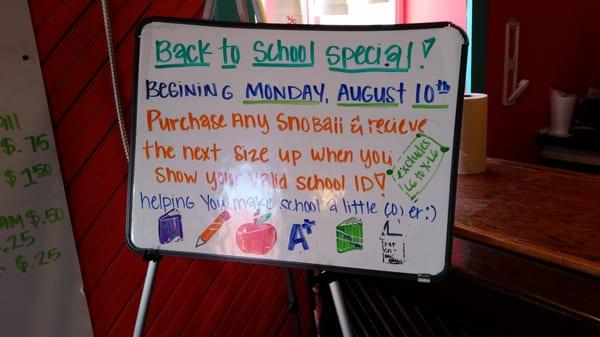 Back to School special!
BEGINING MONDAY, AUGUST 10th
Purchase Any SnoBall & recieve
the next size up when you
show your valid school ID!
excludes
LG to X-LG
helping you make school a little cooler :)
A+
$.75
$1.50
$.50
$.25
$.25